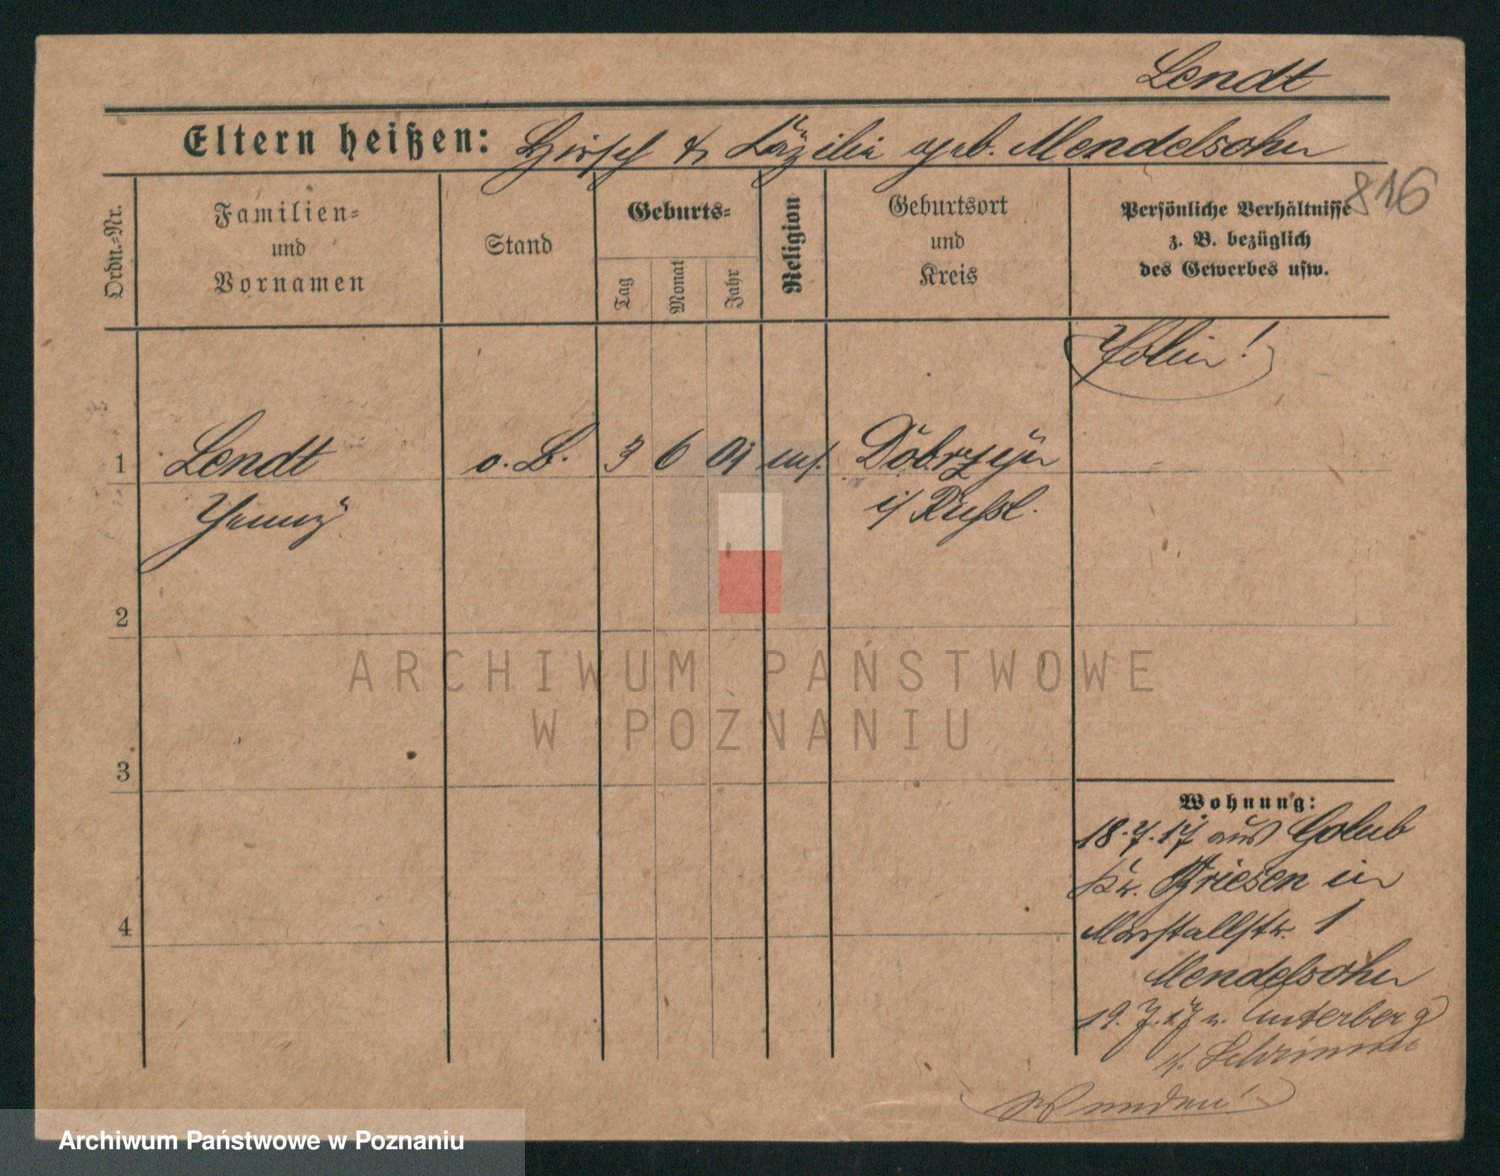 Lendt
Eltern heißen: Hirsch & Cäzilie geb. Mendelsohn
816
Ordn.-Nr.
Familien-
und
Vornamen
Stand
Geburts-
Tag
Monat
Jahr
Religion
Geburtsort
und
Kreis
Persönliche Verhältnisse
z. B. bezüglich
des Gewerbes usw.
1
Lendt
Jenny
o. B.
3
6
Dobrzyn
i/ Rußl.
2
ARCHIWUM PAŃSTWOWE
W POZNANIU
3
4
Wohnung:
18.7.17 aus Golub
Kr. Briesen in
Marstallstr. 1
Mendelsohn
19.7.17 n. Unterberg
k. Schrimm
Archiwum Państwowe w Poznaniu